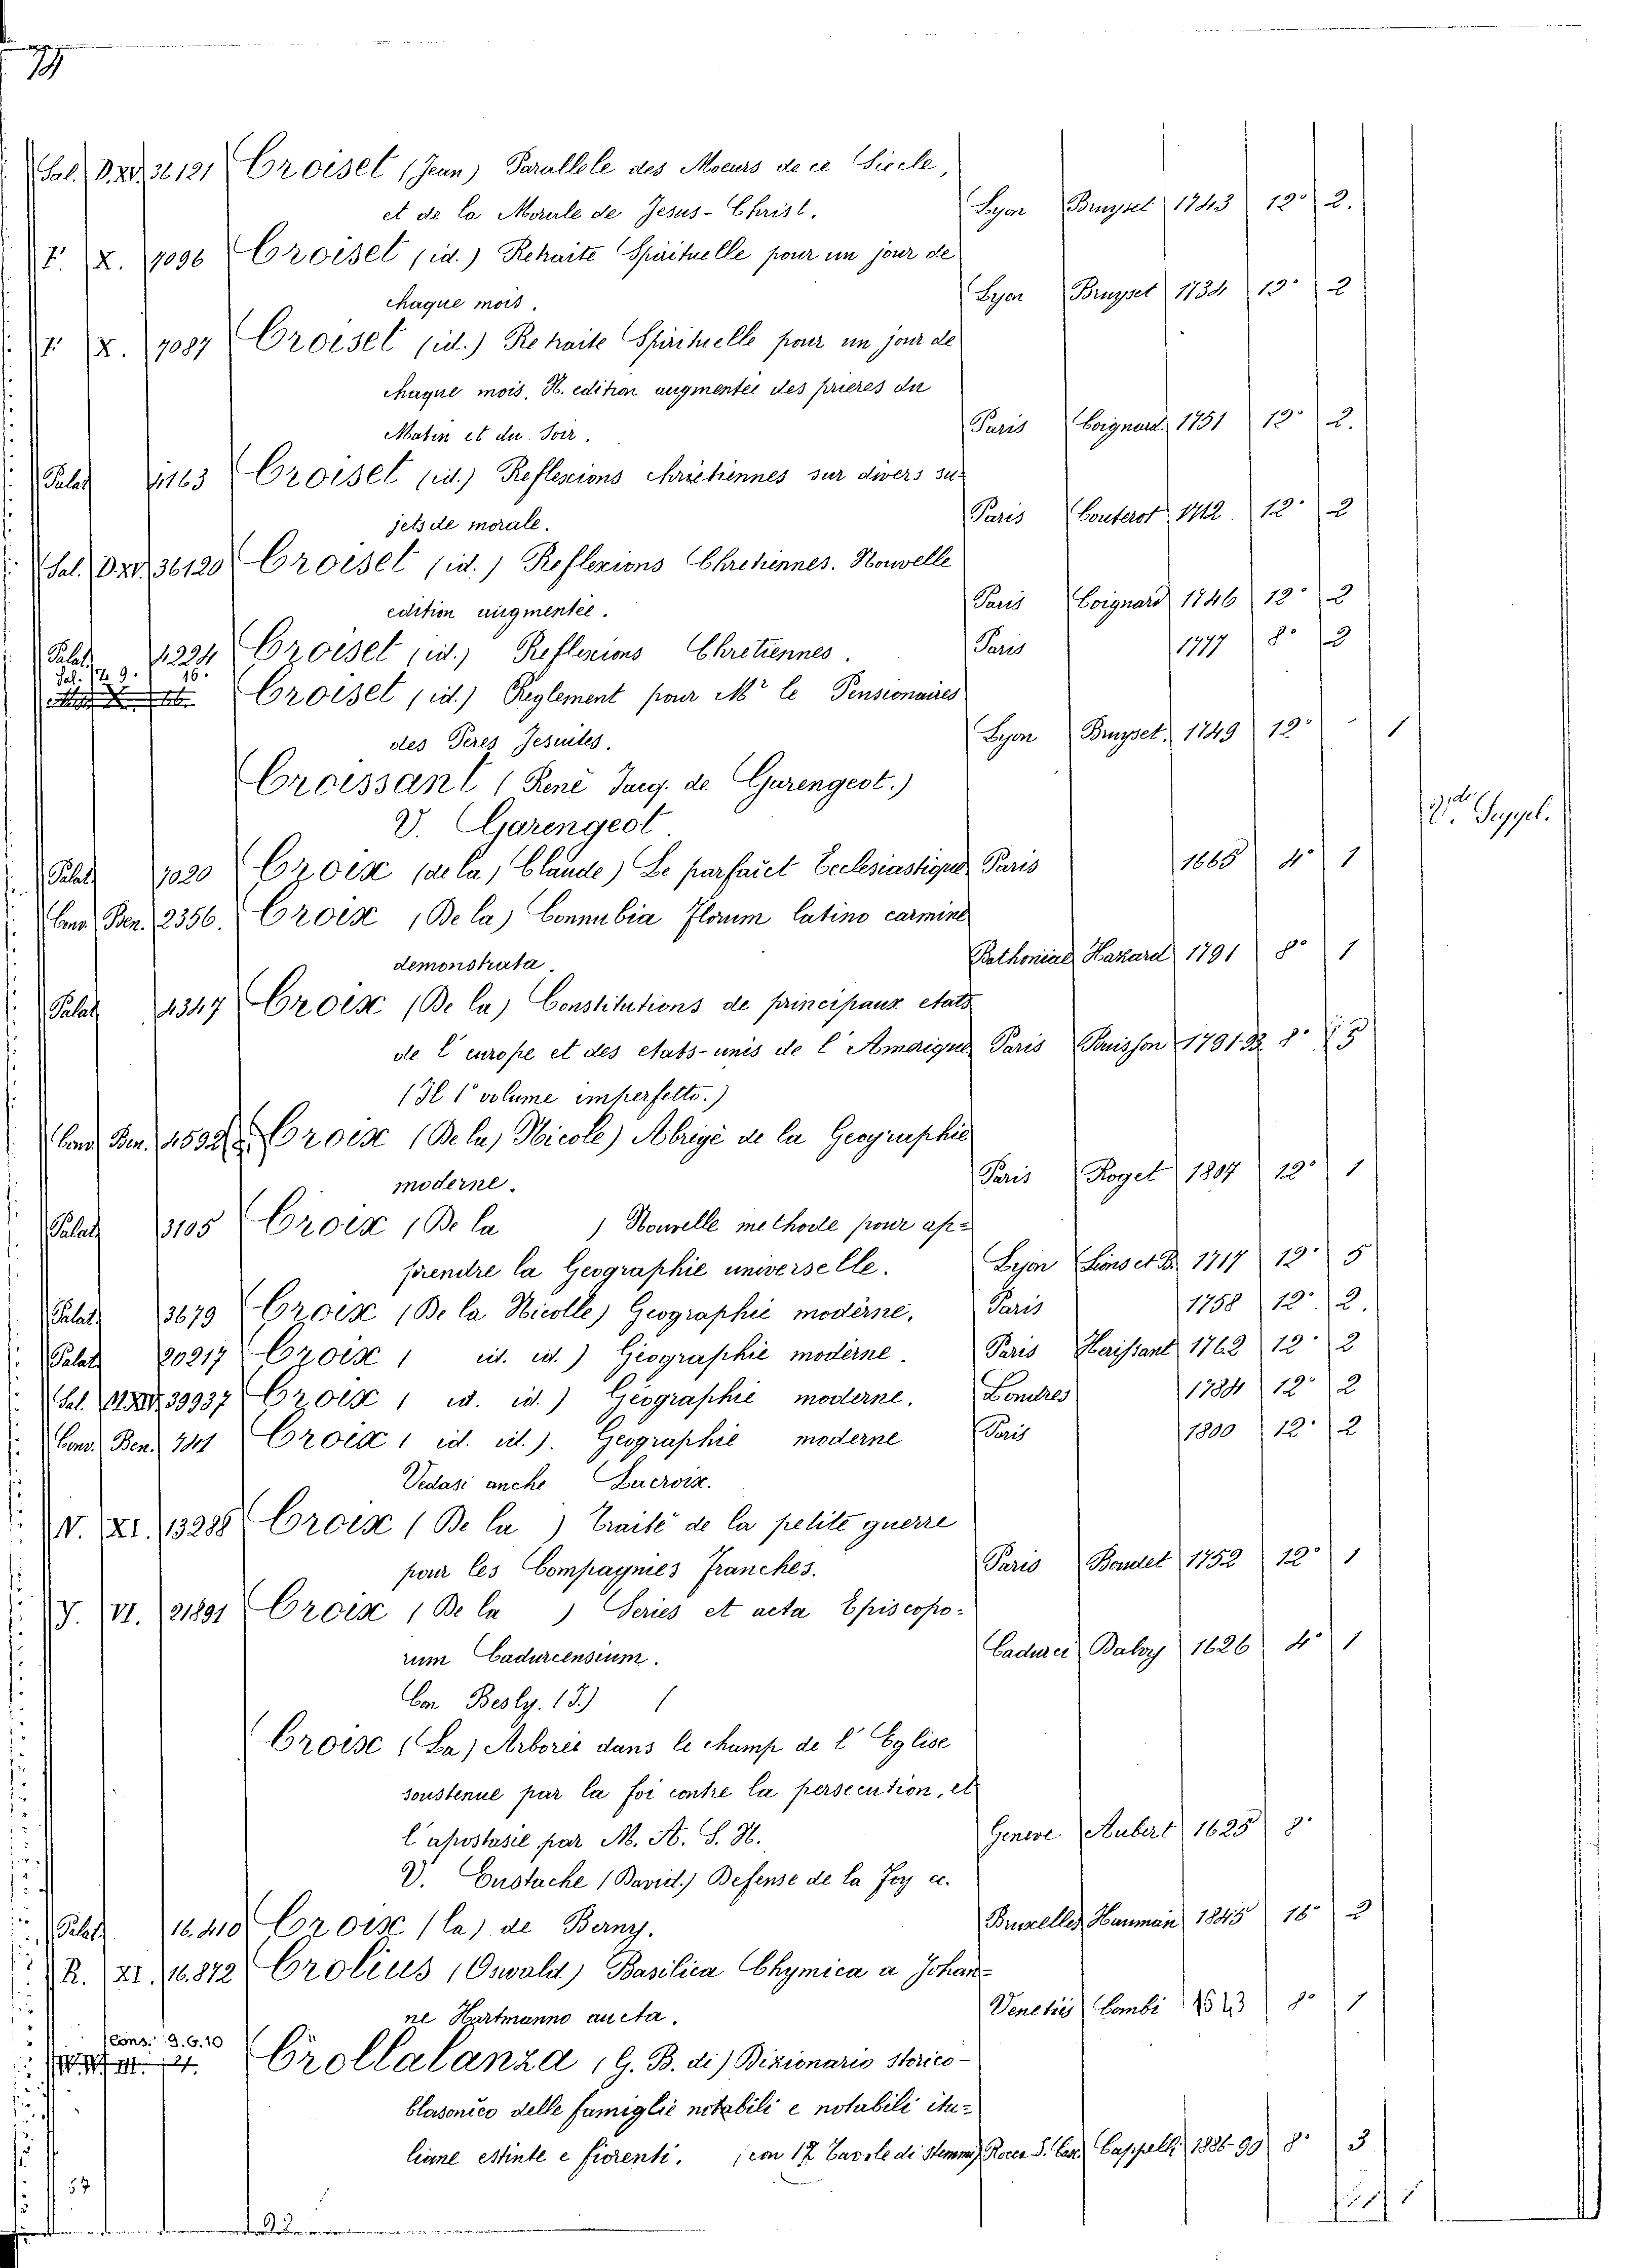 Sal. D.XV. 36121 Croiset (Jean) Parallele des Moeurs de ce Siecle,
et de la Morale de Jesus-Christ. Lyon Bruyset 1743 12° 2.
F. X. 7096 Croiset (id.) Retraite Spirituelle pour un jour de
chaque mois. Lyon Bruyset 1734 12° 2
F. X. 7087 Croiset (id.) Retraite Spirituelle pour un jour de
chaque mois. N. edition augmentée des prieres du
Matin et du Soir. Paris Coignard 1751 12° 2.
Palat 1163 Croiset (id.) Reflexions chrietiennes sur divers su-
jets de morale. Paris Couterot 1712. 12° 2
Sal. D.XV. 36120 Croiset (id.) Reflexions Chretiennes. Nouvelle
edition augmentée. Paris Coignard 1746 12° 2
Palat. 1224 Croiset (id.) Reflexions Chretiennes. Paris 1777 8° 2
Sal. 9. 16. Croiset (id.) Reglement pour Mr le Pensionaires
des Peres Jesuites. Lyon Bruyset. 1749 12° 1
Croissant (René Jacq. de Garengeot.)
V. Garengeot Suppl.
Palat 1020 Croix (de la, Claude) Le parfaict Ecclesiastique Paris 1665 4° 1
Cons. Ben. 2356. Croix (De la) Connubia Florum latino carmine
demonstrata. Bathoniae Hazard 1791 8° 1
Palat 4347 Croix (De la) Constitutions de principaux etats
de l'europe et des etats-unis de l'Amerique Paris Buisson 1791.92 8° 5
(Il 1° volume imperfetto.)
Cons. Ben. 4532 Croix (De la, Nicole) Abrigé de la Geographie
moderne. Paris Roget 1807 12° 1
Palat 3105 Croix (De la ) Nouvelle methode pour ap-
prendre la Geographie universelle. Lyon 1717 12° 5
Palat. 3679 Croix (De la Nicolle) Geographie moderne. Paris 1758 12° 2.
Palat. 20217 Croix ( id. id.) Geographie moderne. Paris Herissant 1762 12° 2
Sal. 39937 Croix ( id. id.) Géographie moderne. Londres 1784 12° 2
Cons. Ben. 741 Croix ( id. id.). Geographie moderne Paris 1800 12° 2
Vedasi anche Lacroix.
V. XI. 13288 Croix (De la ) Traité de la petite guerre
pour les Compagnies Franches. Paris Boudet 1752 12° 1
J. VI. 21891 Croix (De la ) Series et acta Episcopo-
rum Cadurcensium. Cadurci Dalvy 1626 4° 1
Con Besly. (J.)
Croix (La) Arborée dans le champ de l'Eglise
soustenue par la foi contre la persecution, et
l'apostasie par M. A. S. H. Geneve Aubert 1625 8°
V. Eustache (David.) Defense de la Foy &.
Palat. 16.410 Croix (la) de Berny. Bruxelles Hauman 1845 16° 2
R. XI. 16.872 Crolius (Oswald) Basilica Chymica a Johan-
ne Hartmanno aucta. Venetiis Combi 1643 8° 1
Cons. 9.6.10 Crollalanza (G. B. di) Dizionario storico-
blasonico delle famiglie notabili e notabili ita-
liane estinte e fiorenti. (con 17 Tavole di Stemmi) Rocca S. Casc. Cappelli 1886-90 8° 3